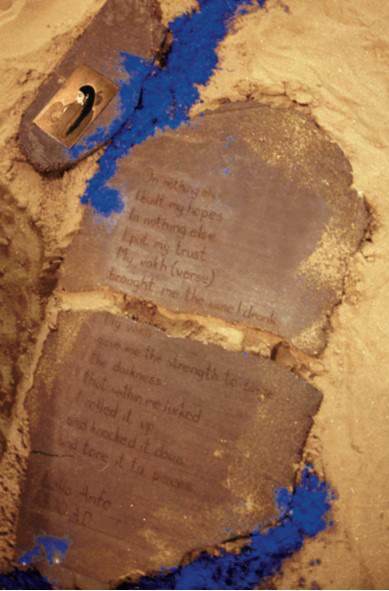 In nothing else
I built my hopes
In nothing else
I put my trust
My vakh (verse)
brought me the wine I drank
My
gave me the strength to
the darkness
that within me lurked
I rolled it up
and knocked it down
and tore it to pieces